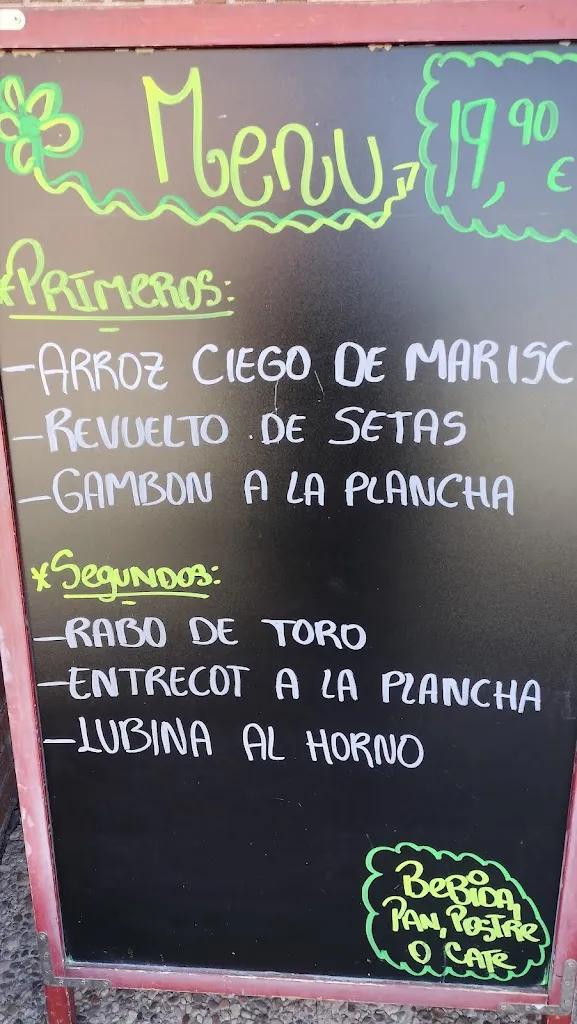 Menu
19,90 €
*Primeros:
-ARROZ CIEGO DE MARISC
-REVUELTO DE SETAS
-GAMBON A LA PLANCHA
*Segundos:
-RABO DE TORO
-ENTRECOT A LA PLANCHA
-LUBINA AL HORNO
BEBIDA,
PAN, POSTRE
O CAFE